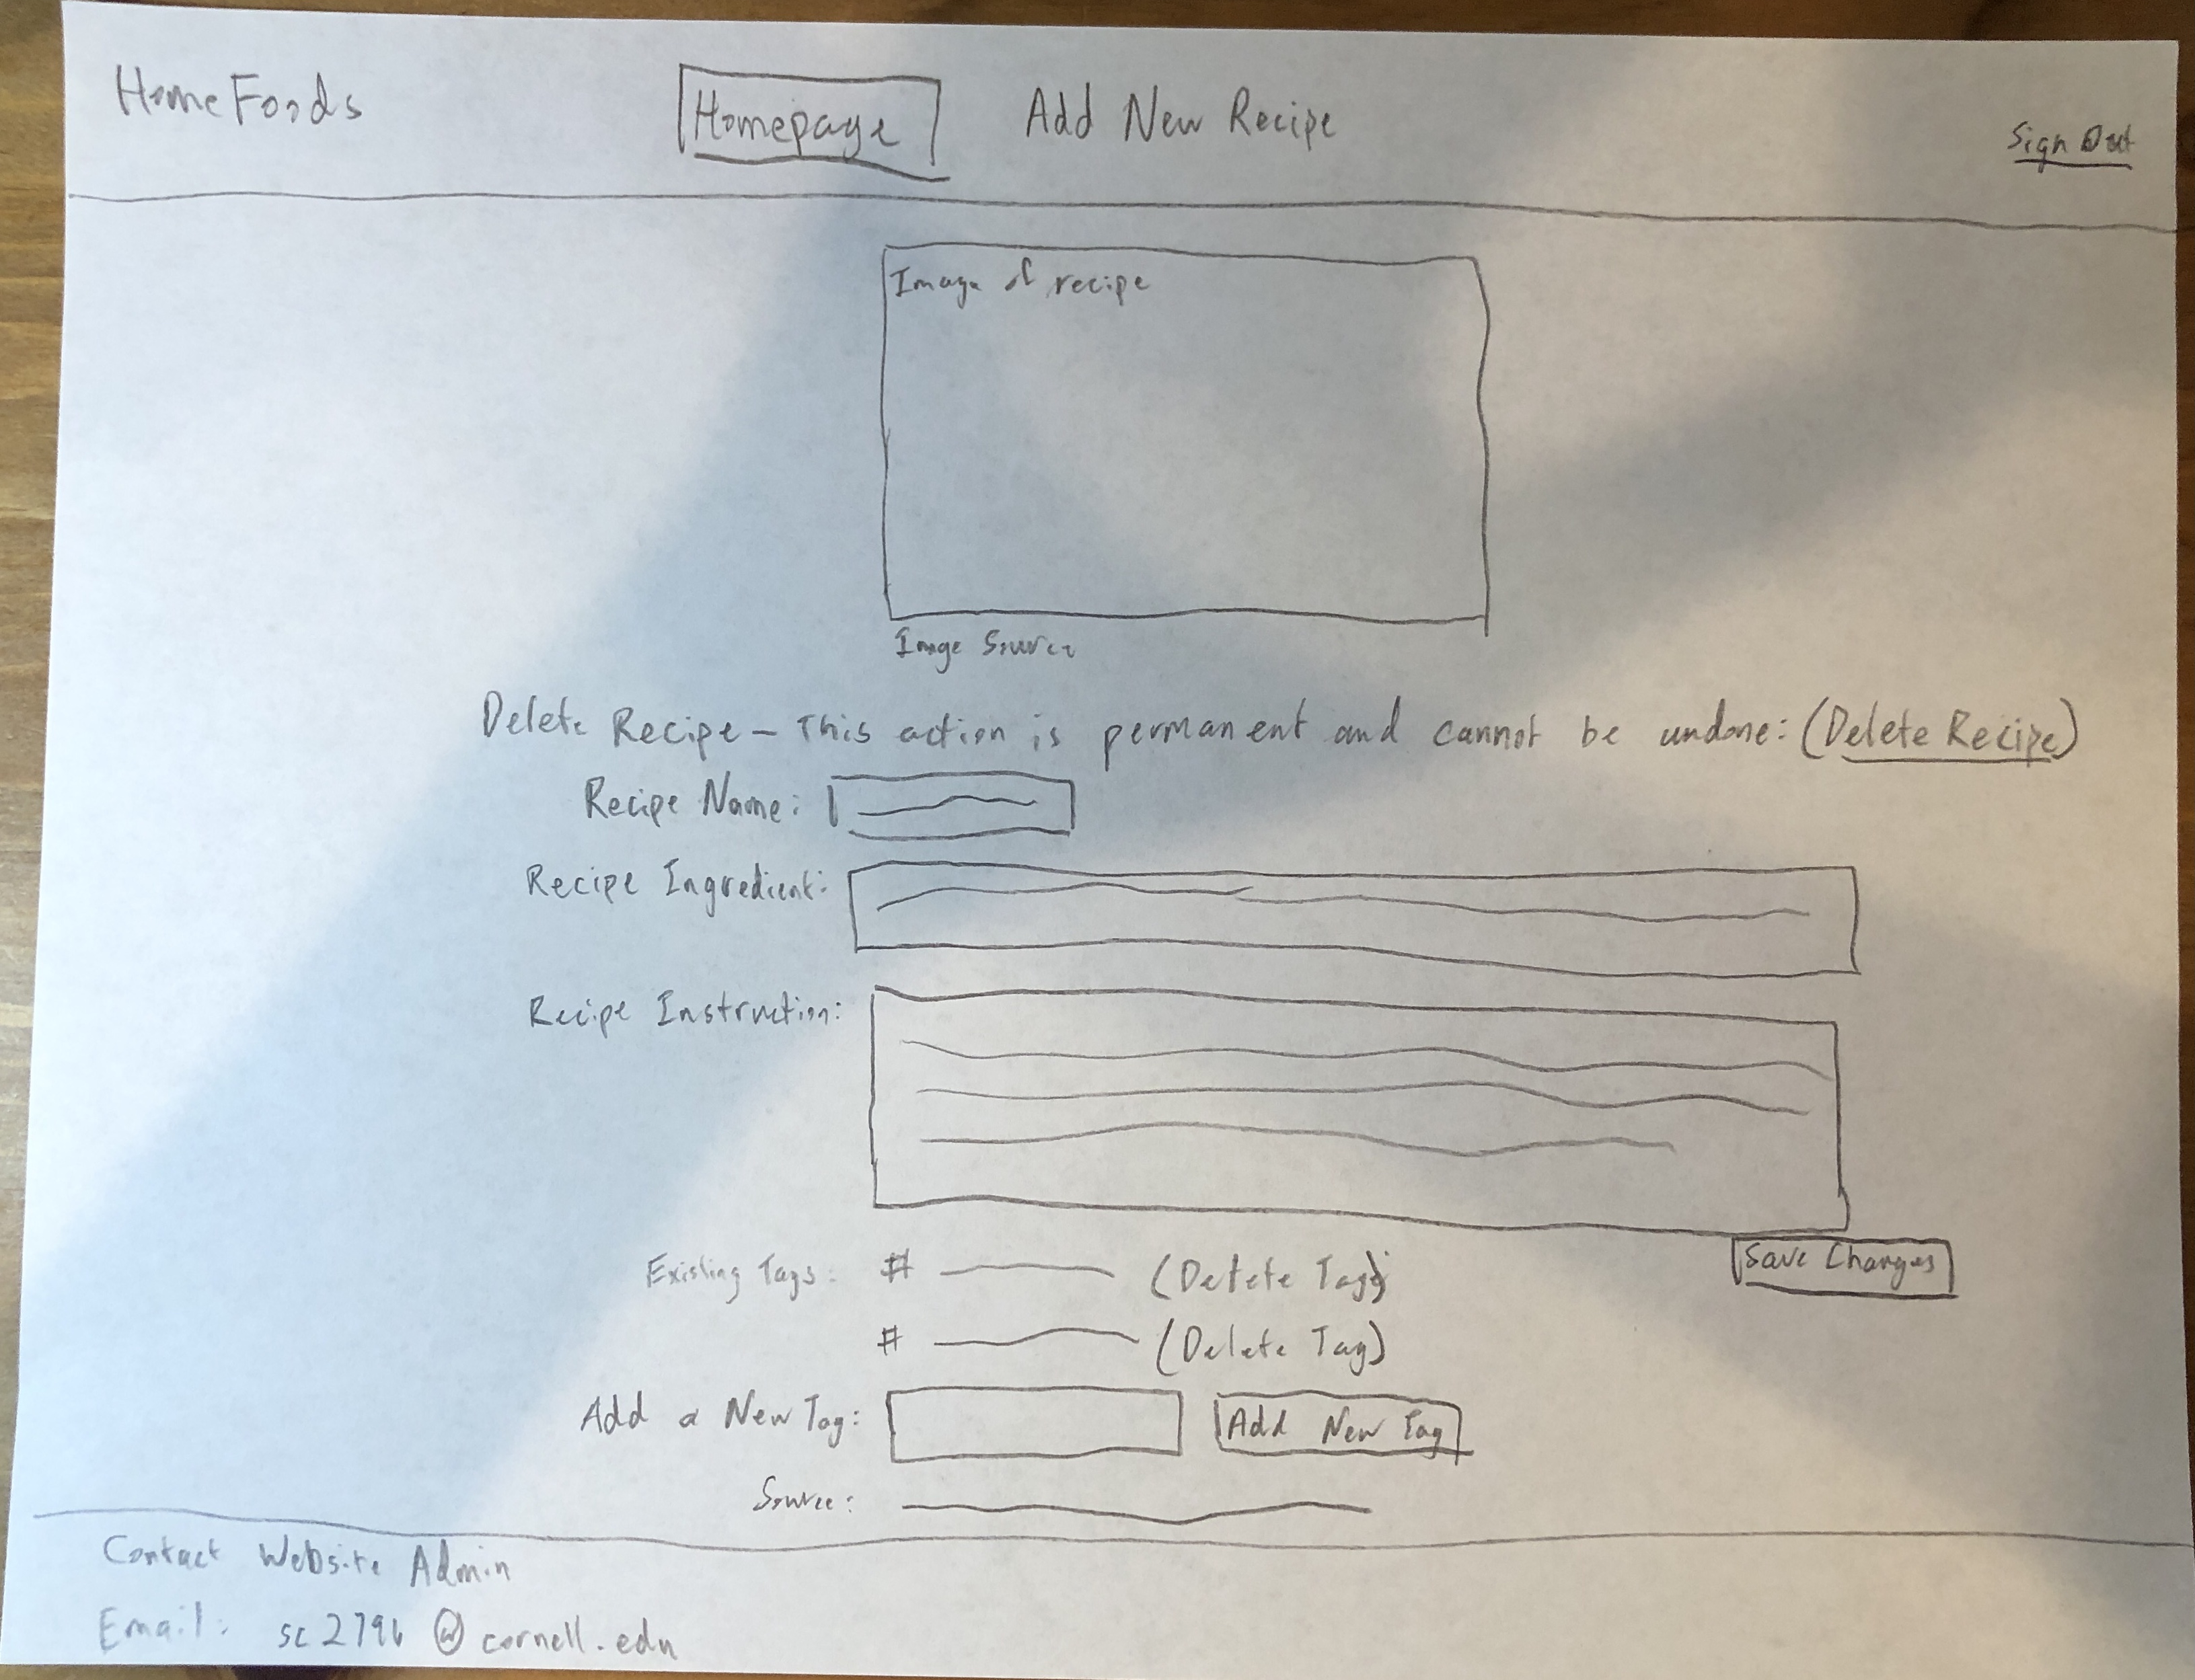 HomeFoods Homepage Add New Recipe Sign Out
Image of recipe
Image Source
Delete Recipe - This action is permanent and cannot be undone: (Delete Recipe)
Recipe Name:
Recipe Ingredient:
Recipe Instruction:
Save Changes
Existing Tags: # (Delete Tag)
# (Delete Tag)
Add a New Tag: Add New Tag
Source:
Contact Website Admin
Email: sc2796@cornell.edu